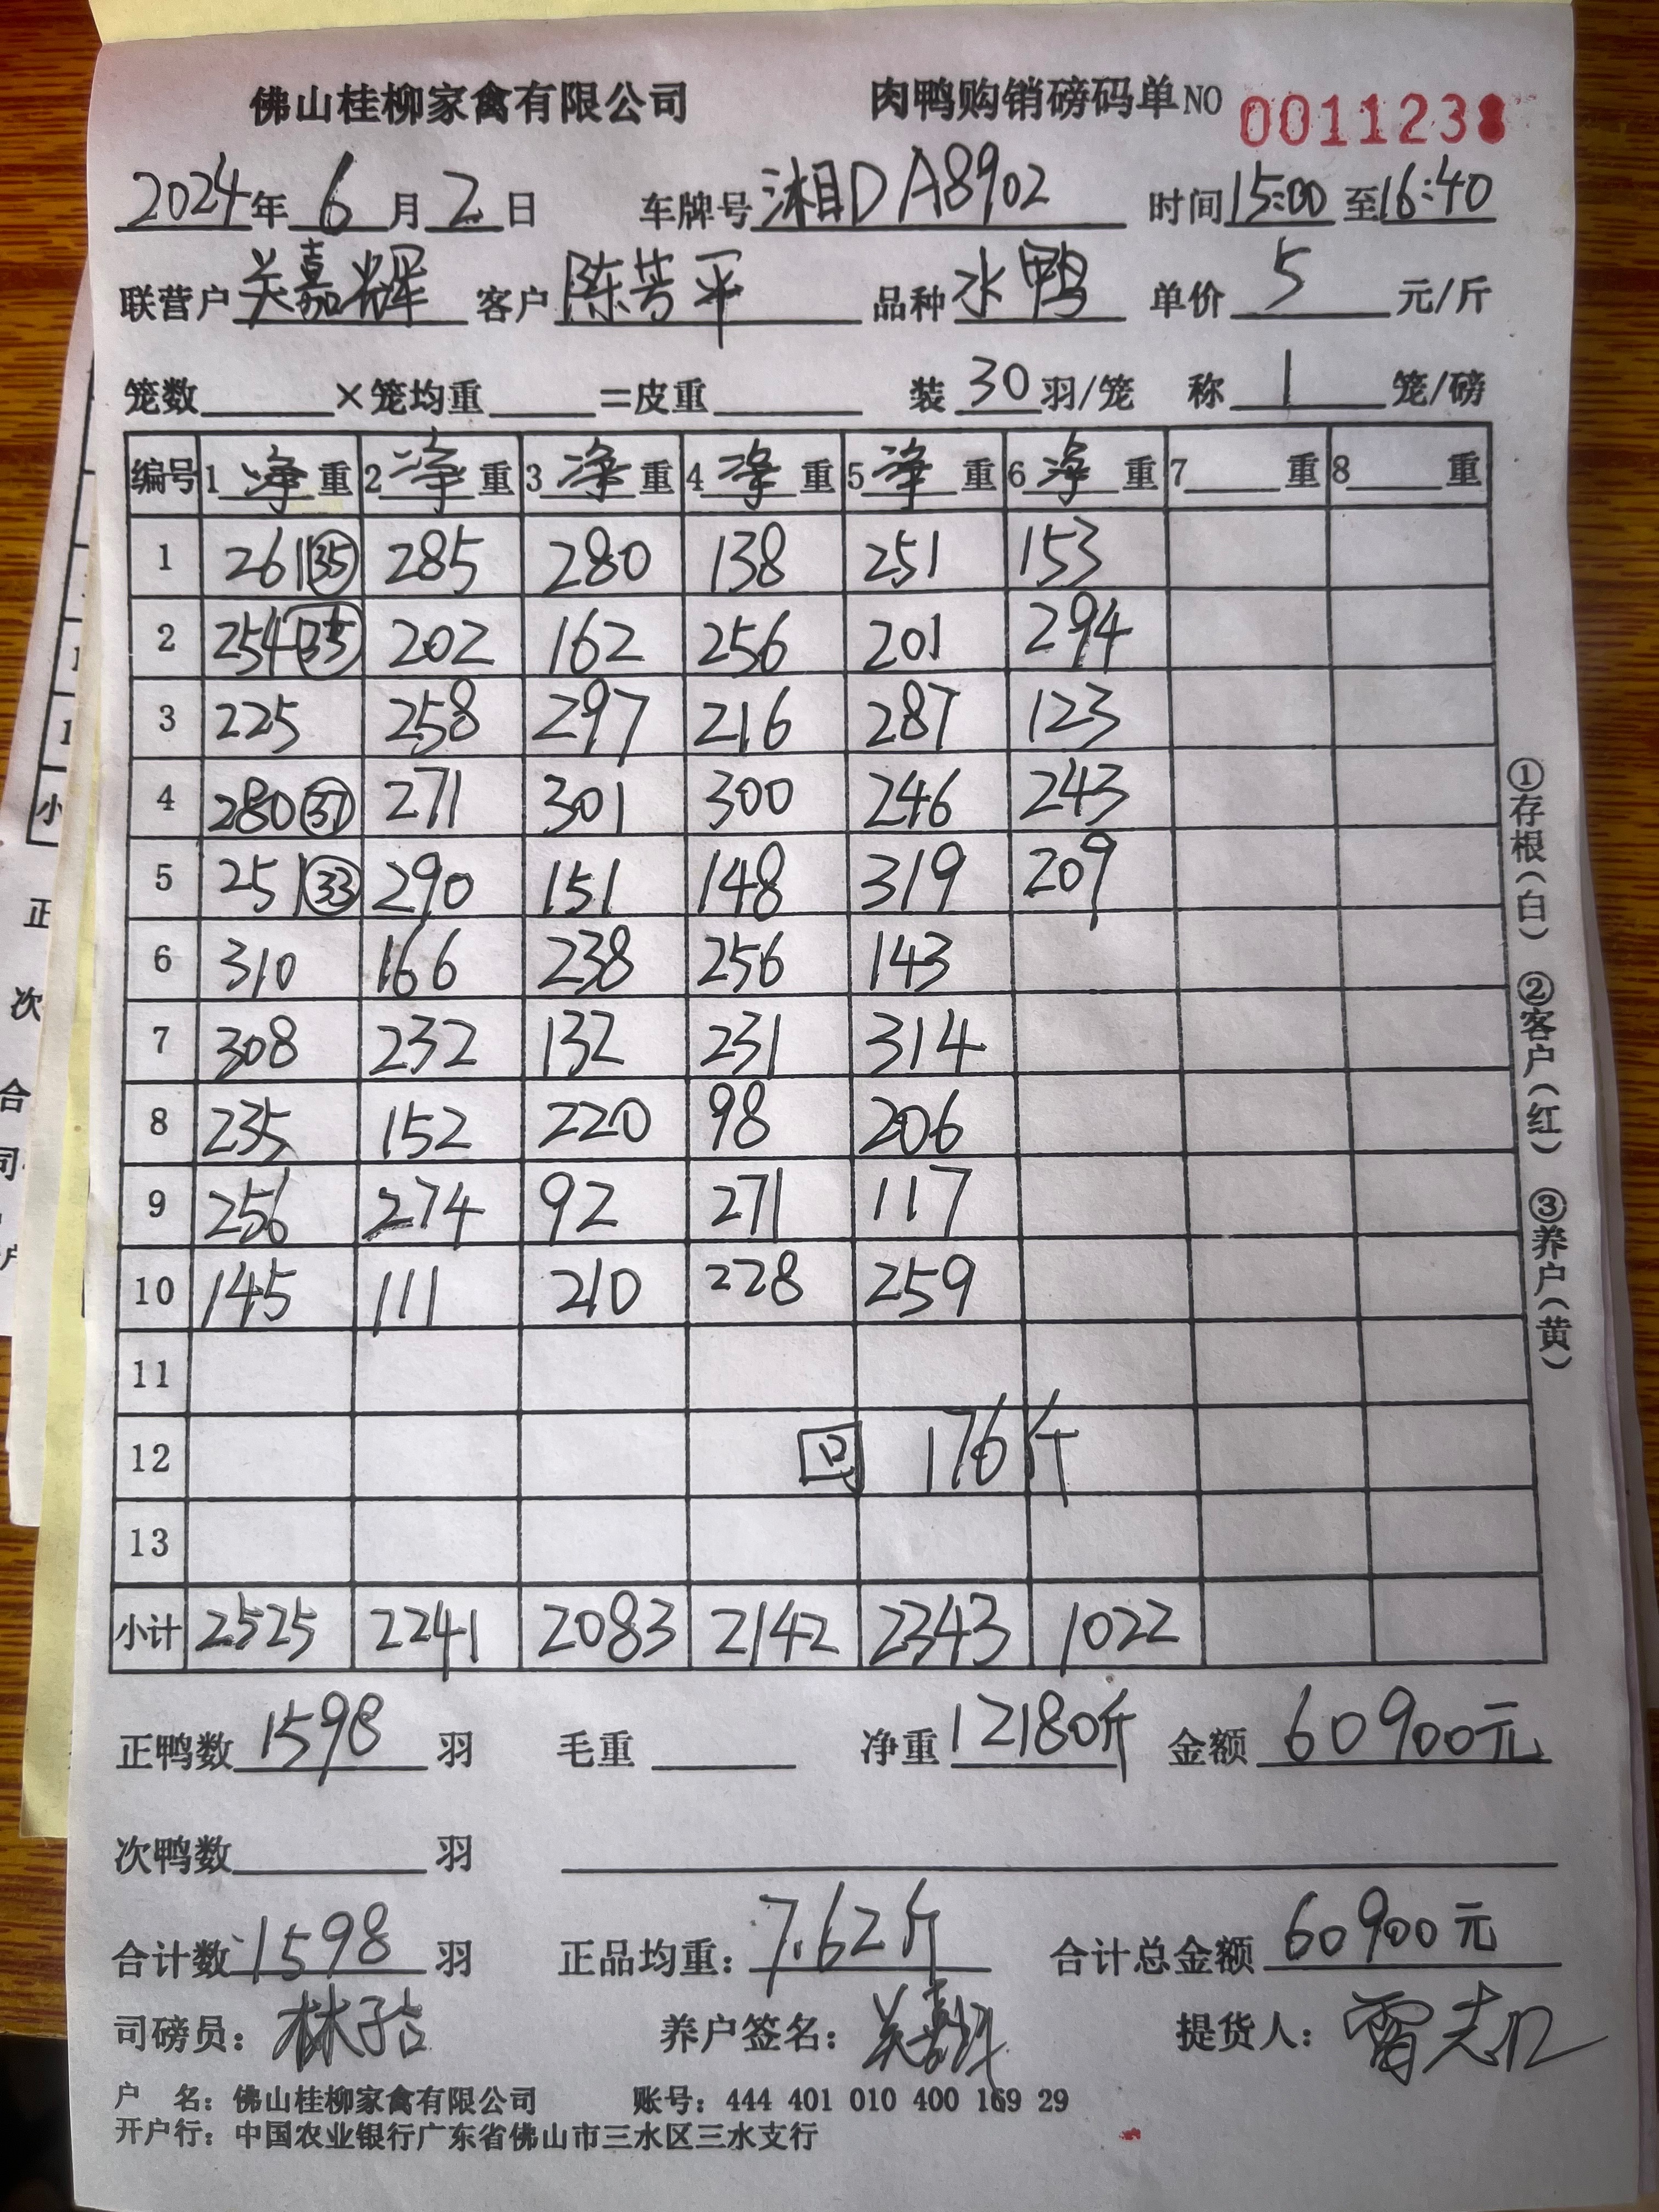 佛山桂柳家禽有限公司 肉鸭购销磅码单NO 0011238
2024年 6月 2日 车牌号 湘DA8902 时间 15:00 至 16:40
联营户 关嘉辉 客户 陈芳平 品种 水鸭 单价 5 元/斤
笼数 ×笼均重 =皮重 装 30 羽/笼 称 1 笼/磅
编号 1 净 重 2 净 重 3 净 重 4 净 重 5 净 重 6 净 重 7 重 8 重
1 261 35 285 280 138 251 153
2 254 35 202 162 256 201 294
3 225 258 297 216 287 123
4 280 37 271 301 300 246 243
5 251 33 290 151 148 319 209
6 310 166 238 256 143
7 308 232 132 231 314
8 235 152 220 98 206
9 256 274 92 271 117
10 145 111 210 228 259
11
12 回 176斤
13
小计 2525 2241 2083 2142 2343 1022
正鸭数 1598 羽 毛重 净重 12180斤 金额 60900元
次鸭数 羽
合计数 1598 羽 正品均重: 7.62斤 合计总金额 60900元
司磅员: 养户签名: 关嘉辉 提货人:
户 名: 佛山桂柳家禽有限公司 账号: 444 401 010 400 169 29
开户行: 中国农业银行广东省佛山市三水区三水支行
①存根(白) ②客户(红) ③养户(黄)